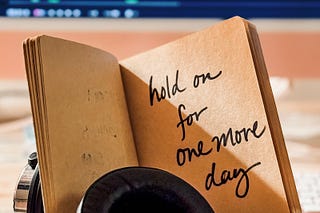 hold on
for
one more
day